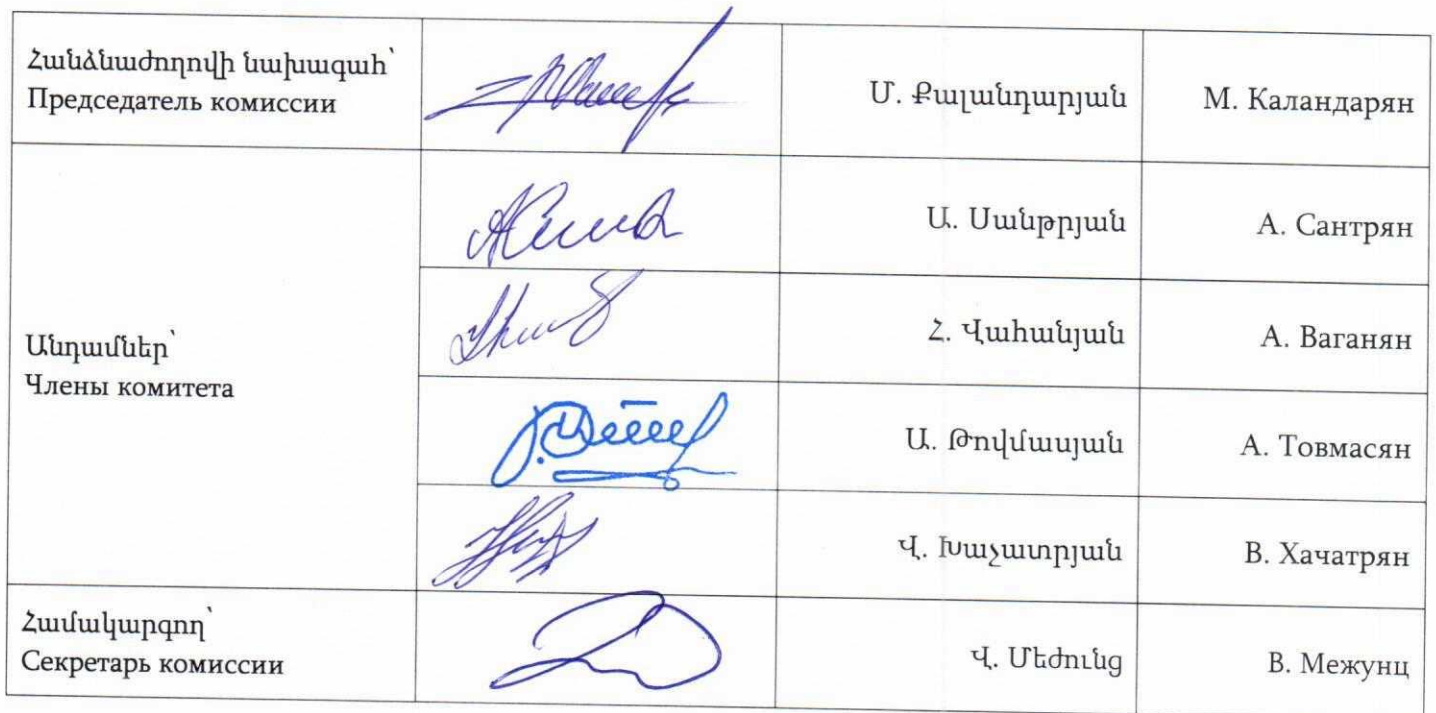 Հանձնաժողովի նախագահ՝
Председатель комиссии
Մ. Քալանդարյան
М. Каландарян
Ա. Սանթրյան
А. Сантрян
Անդամներ՝
Члены комитета
Հ. Վահանյան
А. Ваганян
Ա. Թովմասյան
А. Товмасян
Վ. Խաչատրյան
В. Хачатрян
Համակարգող՝
Секретарь комиссии
Վ. Մեժունց
В. Межунц